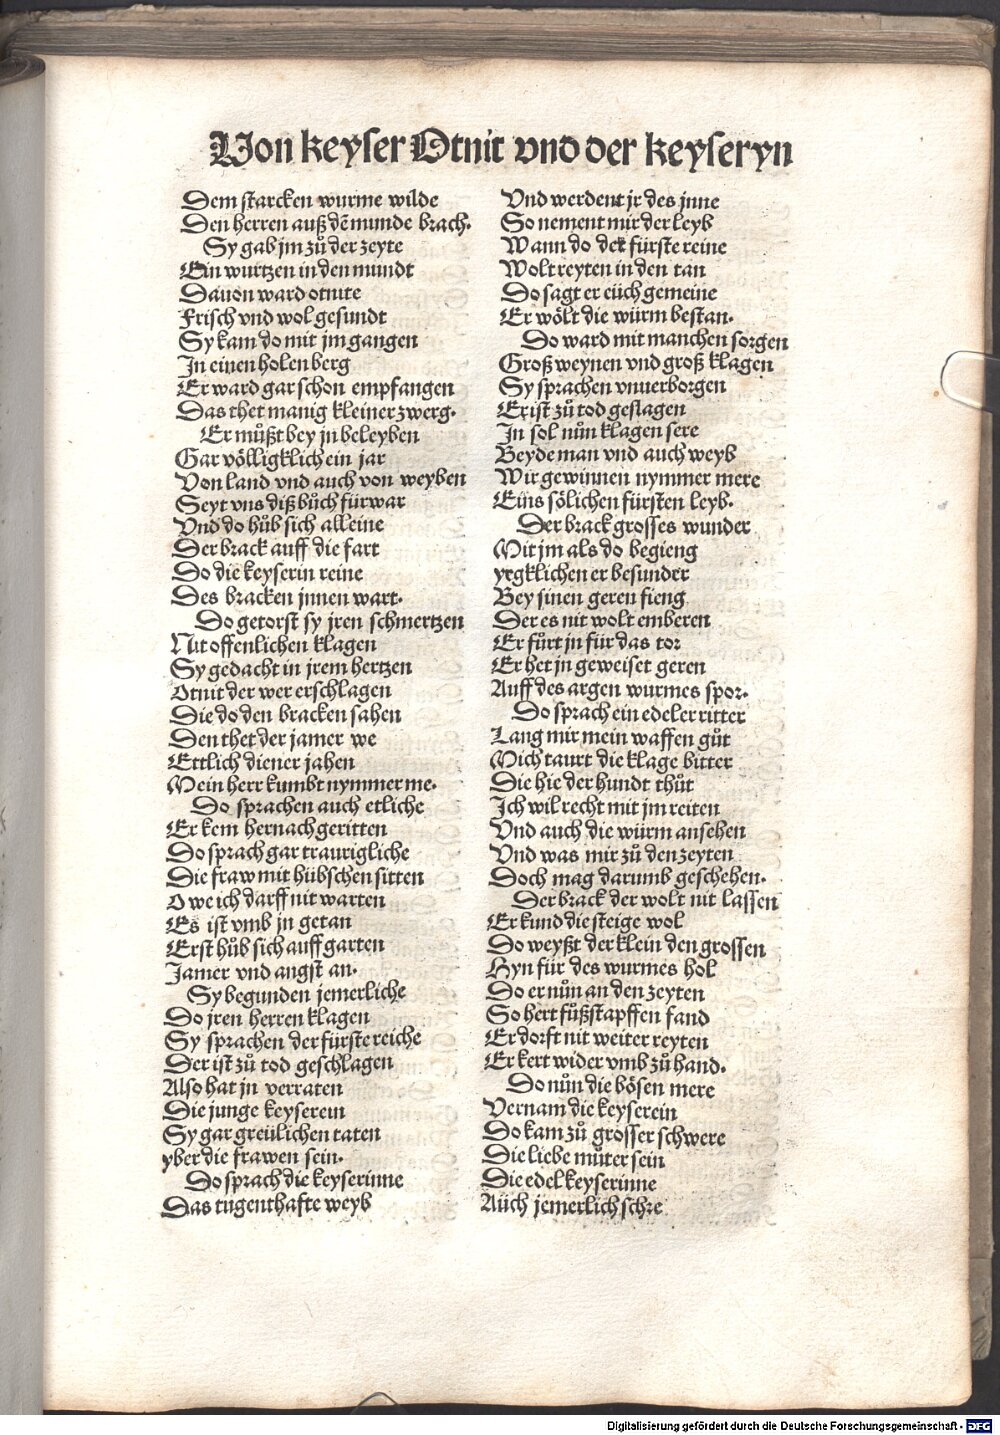 Von keyser Otnit vnd der keyseryn
Dem starcken wurme wilde
Den herren auß dē munde brach.
Sy gab jm zů der zeyte
Ein wurtzen in den mundt
Dauon ward otnite
Frisch vnd wol gesundt
Sy kam do mit jm gangen
In einen holen berg
Er ward gar schon empfangen
Das thet manig kleiner zwerg.
Er můßt bey jn beleyben
Gar völligklich ein jar
Von land vnd auch von weyben
Seyt vns diß bůch fürwar
Vnd do hůb sich alleine
Der brack auff die fart
Do die keyserin reine
Des bracken jnnen wart.
Do getorst sy jren schmertzen
Nit offenlichen klagen
Sy gedacht in jrem hertzen
Otnit der wer erschlagen
Die do den bracken sahen
Den thet der jamer we
Ettlich diener jahen
Mein herr kumbt nymmer me.
Do sprachen auch etliche
Er kem hernach geritten
Do sprach gar traurigliche
Die fraw mit hübschen sitten
O we ich darff nit warten
Es ist vmb jn getan
Erst hůb sich auff garten
Jamer vnd angst an.
Sy begunden jemerliche
Do jren herren klagen
Sy sprachen der fürste reiche
Der ist zů tod geschlagen
Also hat jn verraten
Die junge keyserein
Sy gar greülichen taten
yber die frawen sein.
Do sprach die keyserinne
Das tugenthafte weyb
Vnd werdent jr des jnne
So nement mir der leyb
Wann do der fürste reine
Wolt reyten in den tan
Do sagt er eüch gemeine
Er wölt die würm bestan.
Do ward mit manchen sorgen
Groß weynen vnd groß klagen
Sy sprachen vnuerborgen
Er ist zů tod geslagen
In sol nůn klagen sere
Beyde man vnd auch weyb
Wir gewinnen nymmer mere
Eins sölichen fürsten leyb.
Der brack grosses wunder
Mit jm als do begieng
yegklichen er besunder
Bey sinen geren fieng
Der es nit wolt emberen
Er fůrt jn für das tor
Er het jn geweiset geren
Auff des argen wurmes spor.
Do sprach ein edeler ritter
Lang mir mein waffen gůt
Mich taurt die klage bitter
Die hie der hundt thůt
Ich wil recht mit jm reiten
Vnd auch die würm ansehen
Vnd was mir zů den zeyten
Doch mag darumb geschehen.
Der brack der wolt nit lassen
Er kund die steige wol
Do weyßt der klein den grossen
Hyn für des wurmes hol
Do er nůn an den zeyten
So hert fůßstapffen fand
Er dorft nit weiter reyten
Er kert wider vmb zů hand.
Do nůn die bösen mere
Vernam die keyserein
Do kam zů grosser schwere
Die liebe můter sein
Die edel keyserinne
Aüch jemerlich schre
Digitalisierung gefördert durch die Deutsche Forschungsgemeinschaft - DFG